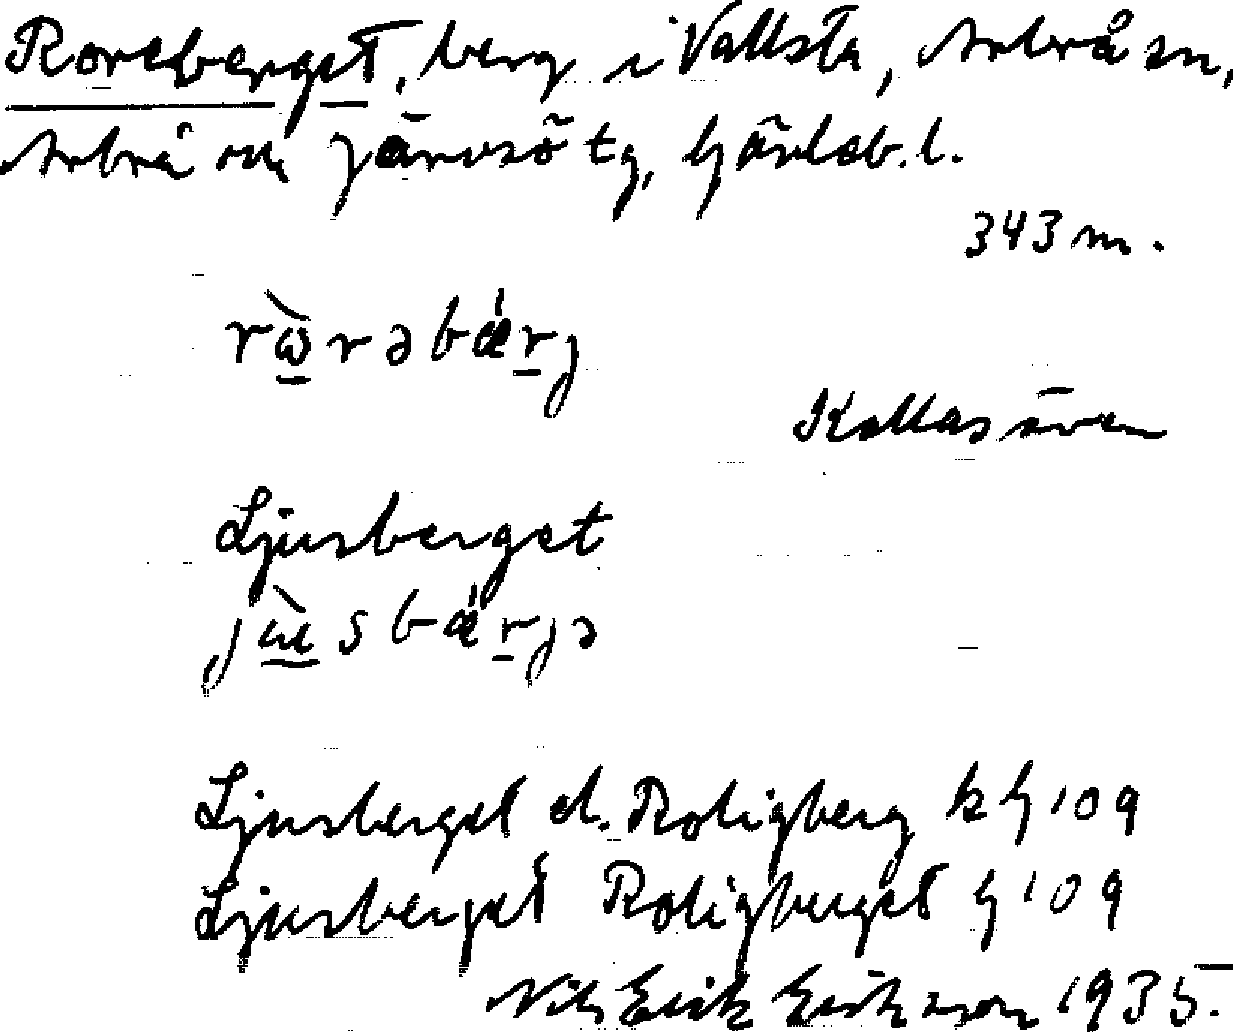 Roreberget, berg i Vallsta, Arbrå sn,
Arbrå och Järvsö tg, Gävleb. l.
343 m.
rὼ̲rəbǽr̲j
Kallas även
Ljusberget
jɯ̲̀sbǽr̲jə
Ljusberget el. Roligberg k G 109
Ljusberget Roligberget G 109
Nils Erik Eriksson 1935.